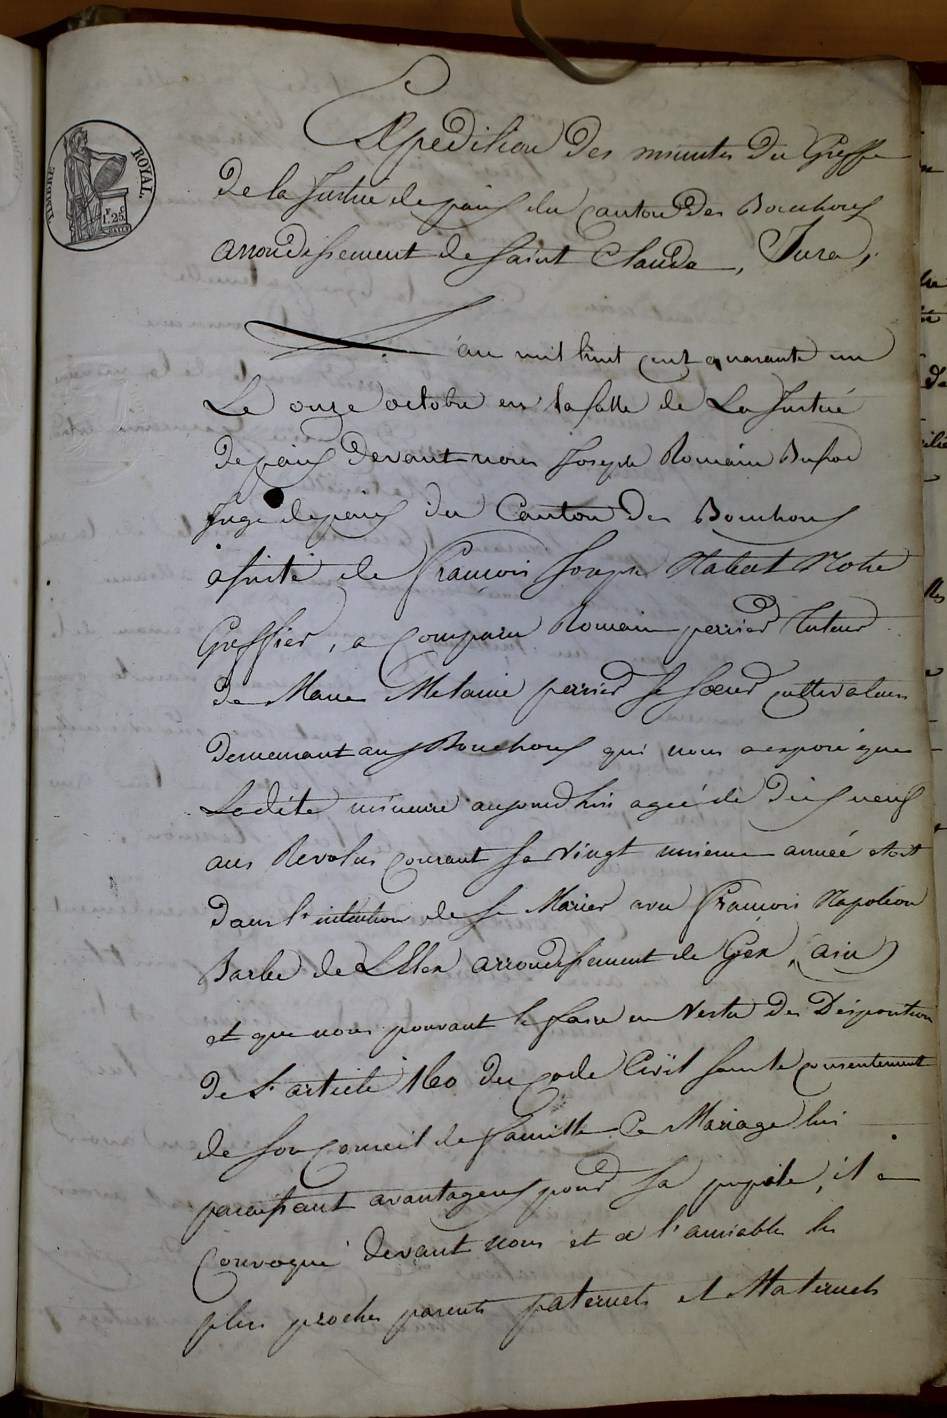 TIMBRE ROYAL.
1f. 25c
Expedition des minutes du Greffe
De la Justice de paix du Canton des Bouchoux
arrondissement de Saint Claude, Jura,
L'an mil huit cent quarante un
Le onze octobre en la salle de La Justice
de paix devant nous Joseph Romain
Juge de paix du Canton des Bouchoux
assisté de François Joseph Notre
Greffier, a Comparu Romain perrier Tuteur
de Marie Melanie perrier sa soeur cultivateur
demeurant aux Bouchoux qui nous a exposé que
Ladite mineure aujourdhui agée de Dix neuf
ans Revolus courant sa vingt unieme année etoit
Dans l'intention de se Marier avec François Napoleon
Barbe de Lellex arrondissement de Gex, (ain)
et que nous pouvant le faire en Vertu des Disposition
De L'article 160 du Code Civil sans le consentement
de son Conseil de famille Ce Mariage lui
paraissant avantageux pour sa pupile, il a
Convoqué devant nous et a l'amiable les
plus proches parents paternels et Maternels